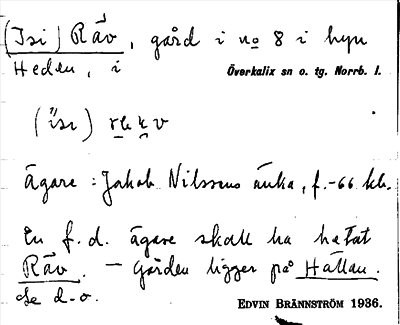 (Isi) Räv, gård i no 8 i byn
Heden, i Överkalix sn o. tg. Norrb. l.
(ïsı)
Ägare: Jakob Nilssons änka, f.-66 kb.
En f.d. ägare skall ha hetat
Räv. – Gården ligger på Hällan.
Se d.o.
EDVIN BRÄNNSTRÖM 1936.